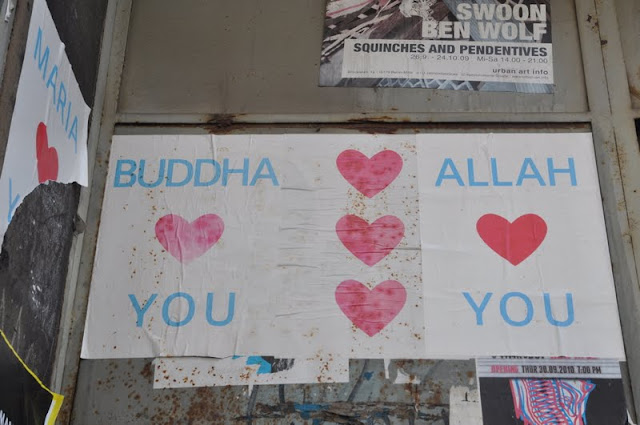 SWOON
BEN WOLF
SQUINCHES AND PENDENTIVES
26.9. - 24.10.09 Mi-Sa 14.00 - 21.00
urban art info
MARIA
YOU
BUDDHA
YOU
ALLAH
YOU
OPENING THUR.30.09.2010, 7:00 PM